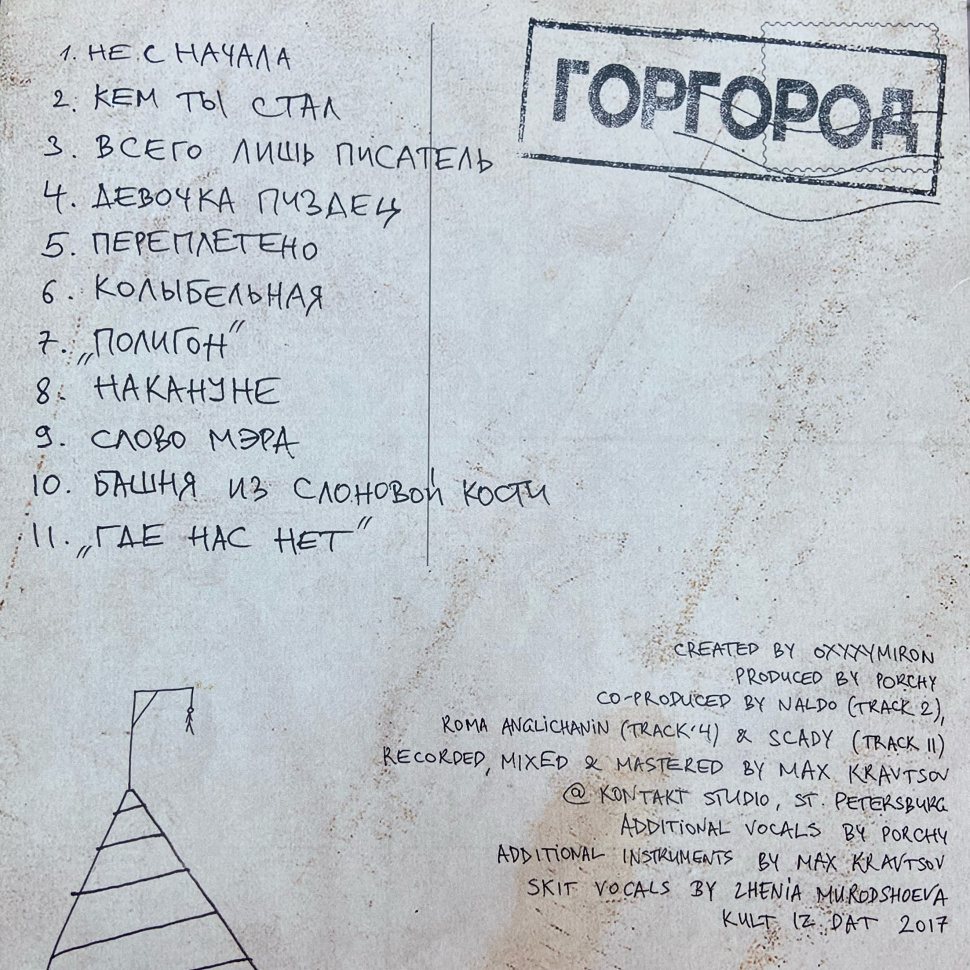 1. НЕ С НАЧАЛА
2. КЕМ ТЫ СТАЛ
3. ВСЕГО ЛИШЬ ПИСАТЕЛЬ
4. ДЕВОЧКА ПИЗДЕЦ
5. ПЕРЕПЛЕТЕНО
6. КОЛЫБЕЛЬНАЯ
7. „ПОЛИГОН”
8. НАКАНУНЕ
9. СЛОВО МЭРА
10. БАШНЯ ИЗ СЛОНОВОЙ КОСТИ
11. „ГДЕ НАС НЕТ”
ГОРГОРОД
CREATED BY OXXXYMIRON
PRODUCED BY PORCHY
CO-PRODUCED BY NALDO (TRACK 2),
ROMA ANGLICHANIN (TRACK 4) & SCADY (TRACK 11)
RECORDED, MIXED & MASTERED BY MAX KRAVTSOV
@ KONTAKT STUDIO, ST. PETERSBURG
ADDITIONAL VOCALS BY PORCHY
ADDITIONAL INSTRUMENTS BY MAX KRAVTSOV
SKIT VOCALS BY ZHENIA MURODSHOEVA
KULT IZ DAT 2017